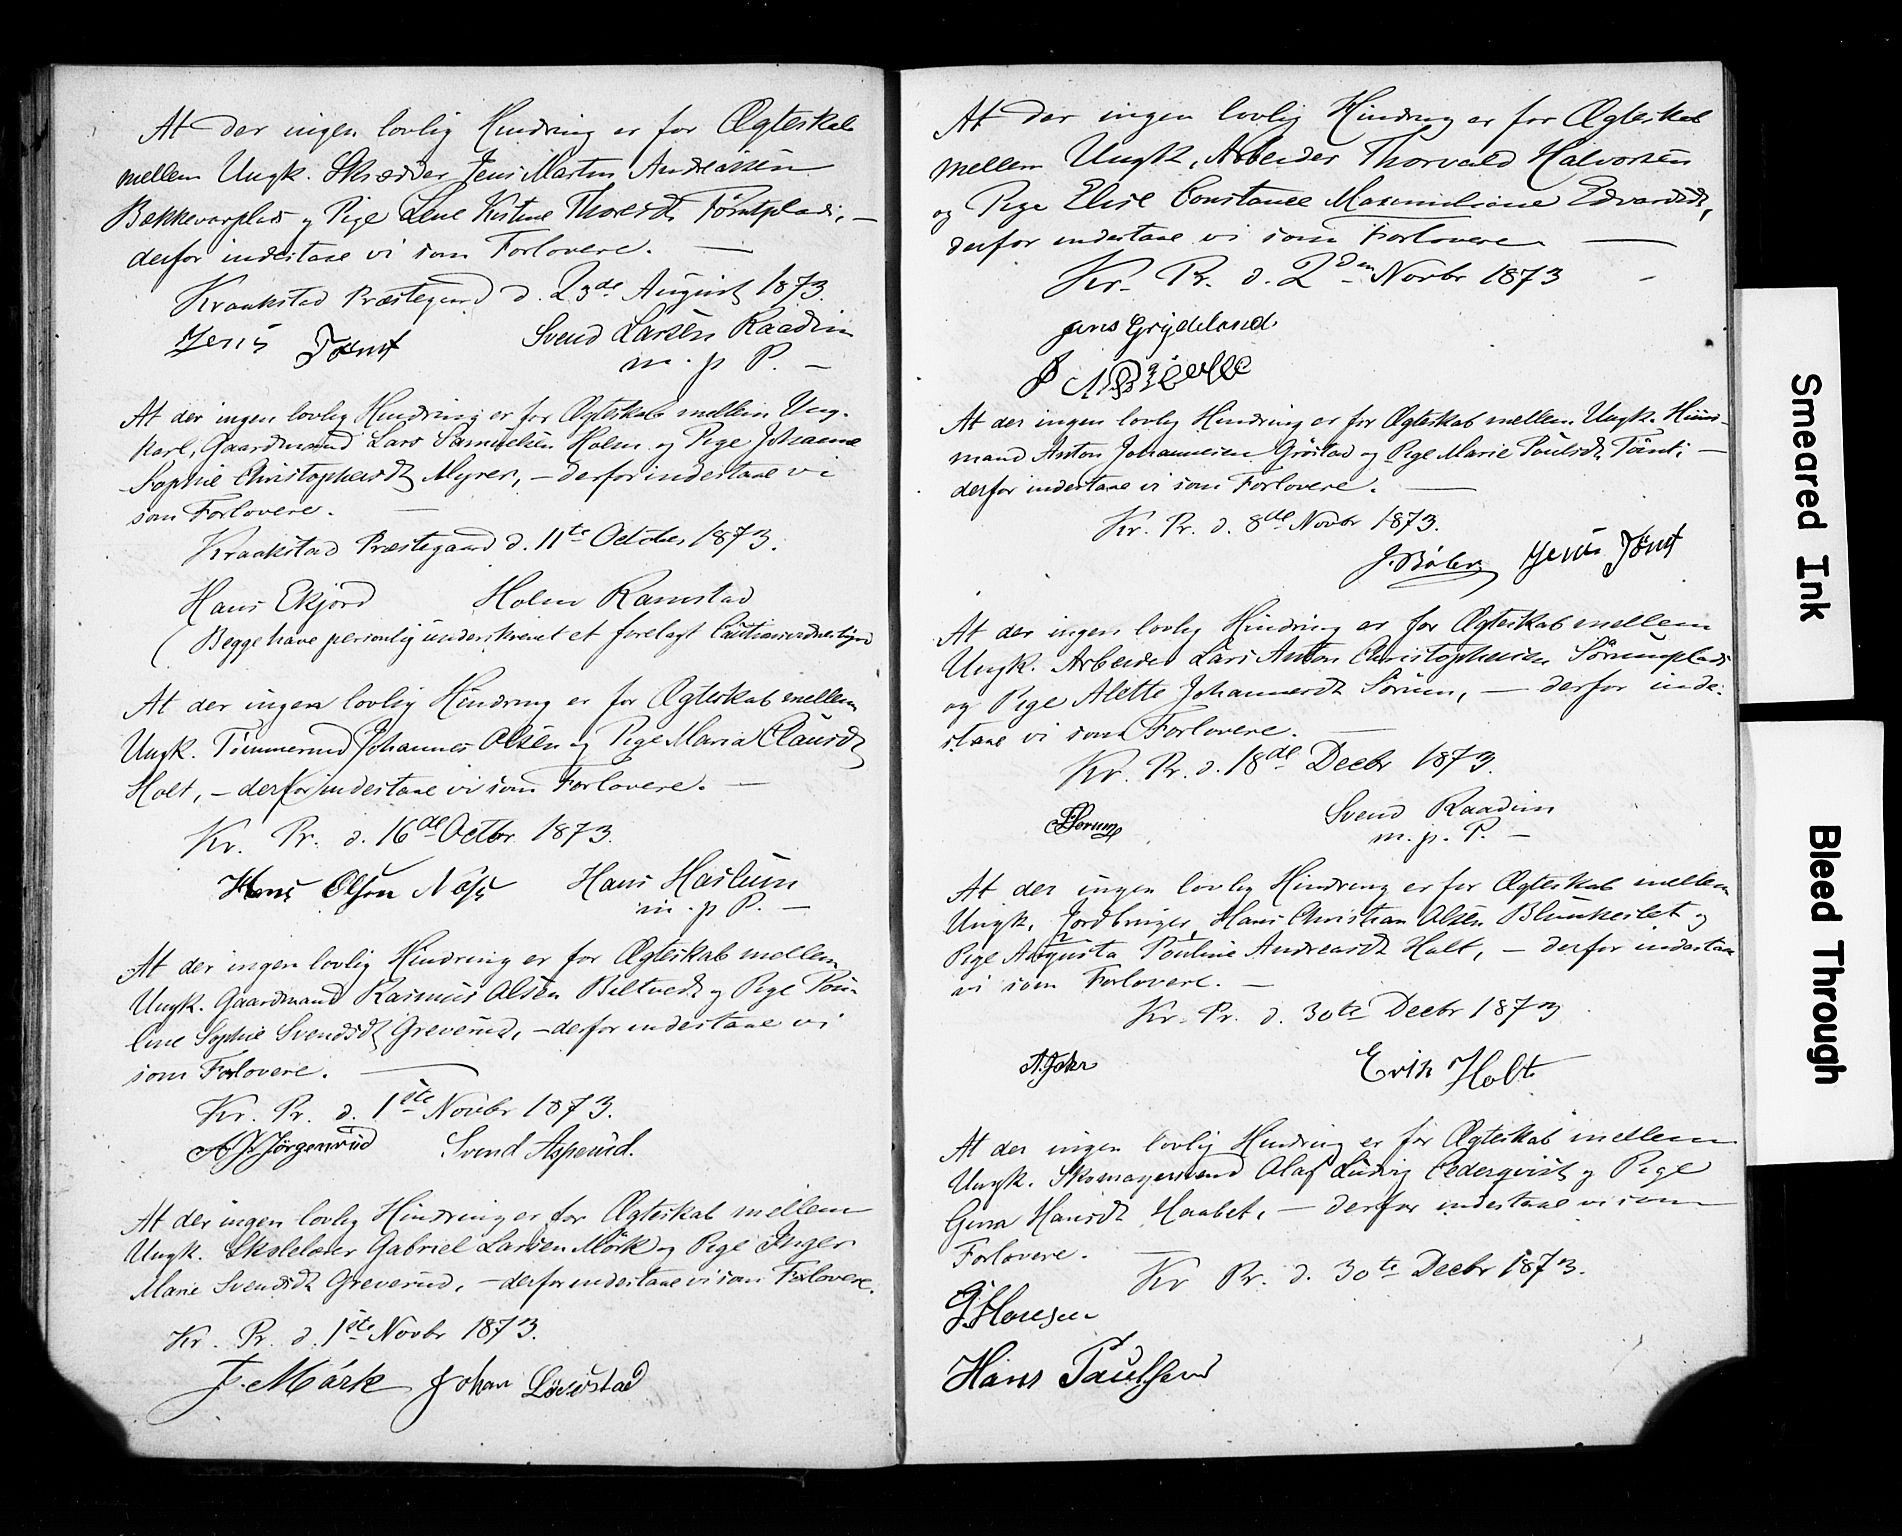 At der ingen lovlig Hindring er for Ægteskab
mellem Ungk. Skrædder Jens Martin Andreassen
Bakkeverplads og Pige Lene Kristine Thoresdt.
derfor indestaae vi som Forlovere. —
Kraakstad Præstegaard d. 23de August 1873.
Jens Tømt Svend Larsen Raadim
m. p. P. —
At der ingen lovlig Hindring er for Ægteskab mellem Ung-
karl, Gaardmand Lars Samuelsen Holm og Pige Johanne
Sophie Christophersdt. Myrer, — derfor indestaae vi
som Forlovere. —
Kraakstad Præstegaard d. 11te October 1873.
Hans Ekjord Holm Ramstad
(Begge have personlig underskrevet et forelagt
At der ingen lovlig Hindring er for Ægteskab mellem
Ungk. Tømmermd. Johannes Olsen og Pige Maria Clausdt.
Holt, — derfor indestaae vi som Forlovere. —
Kr. Pr. d. 16de Octbr. 1873.
Hans Olsen Næss Hans Haslum
m. p. P. —
At der ingen lovlig Hindring er for Ægteskab mellem
Ungk. Gaardmand Rasmus Olsen Biltvedt og Pige Pou-
line Sophie Svendsdt. Greverud, — derfor indestaae vi
som Forlovere. —
Kr. Pr. d. 1ste Novbr 1873.
A J Jørgenrud Svend Asperud.
At der ingen lovlig Hindring er for Ægteskab mellem
Ungk. Skolelærer Gabriel Larsen Mörk og Pige Inger
Marie Svendsdt. Greverud, — derfor indestaae vi som Forlovere.
Kr. Pr. d. 1ste Novbr 1873.
J. Mörk Johan Løvestad
At der ingen lovlig Hindring er for Ægteskab
mellem Ungk. Arbeider Thorvald Halvorsen
og Pige Elise Constance Maximiliane Edvardsdt.,
derfor indestaae vi som Forlovere —
Kr. Pr. d. 2den Novbr 1873
Jens Grydeland
At der ingen lovlig Hindring er for Ægteskab mellem Ungk. Huus-
mand Anton Johannesen Gröstad og Pige Marie Poulsdt. Tömt, —
derfor indestaae vi som Forlovere. —
Kr. Pr. d. 8de Novbr 1873.
J. Böler Jens Tømt
At der ingen lovlig Hindring er for Ægteskab mellem
Ungk. Arbeider Lars Anton Christophersen Sörumplads
og Pige Alette Johannesdt. Sörum, — derfor inde-
staae vi som Forlovere. —
Kr. Pr. d. 18de Decbr 1873.
Sorum Svend Raadim
m. p. P. —
At der ingen lovlig Hindring er for Ægteskab mellem
Ungk. Jordbruger Hans Christian Olsen og
Pige Augusta Pouline Andreasdt. Holt, — derfor indestaae
vi som Forlovere. —
Kr. Pr. d. 30te Decbr 1873
Erik Holt
At der ingen lovlig Hindring er for Ægteskab mellem
Ungk. Skomagersvend Olaf Ludvig Cederqvist og Pige
Gina Hansdt. Haabet, — derfor indestaae vi som
Forlovere. —
Kr Pr. d. 30te Decbr 1873.
Hans Paulsen
Smeared Ink
Bleed Through